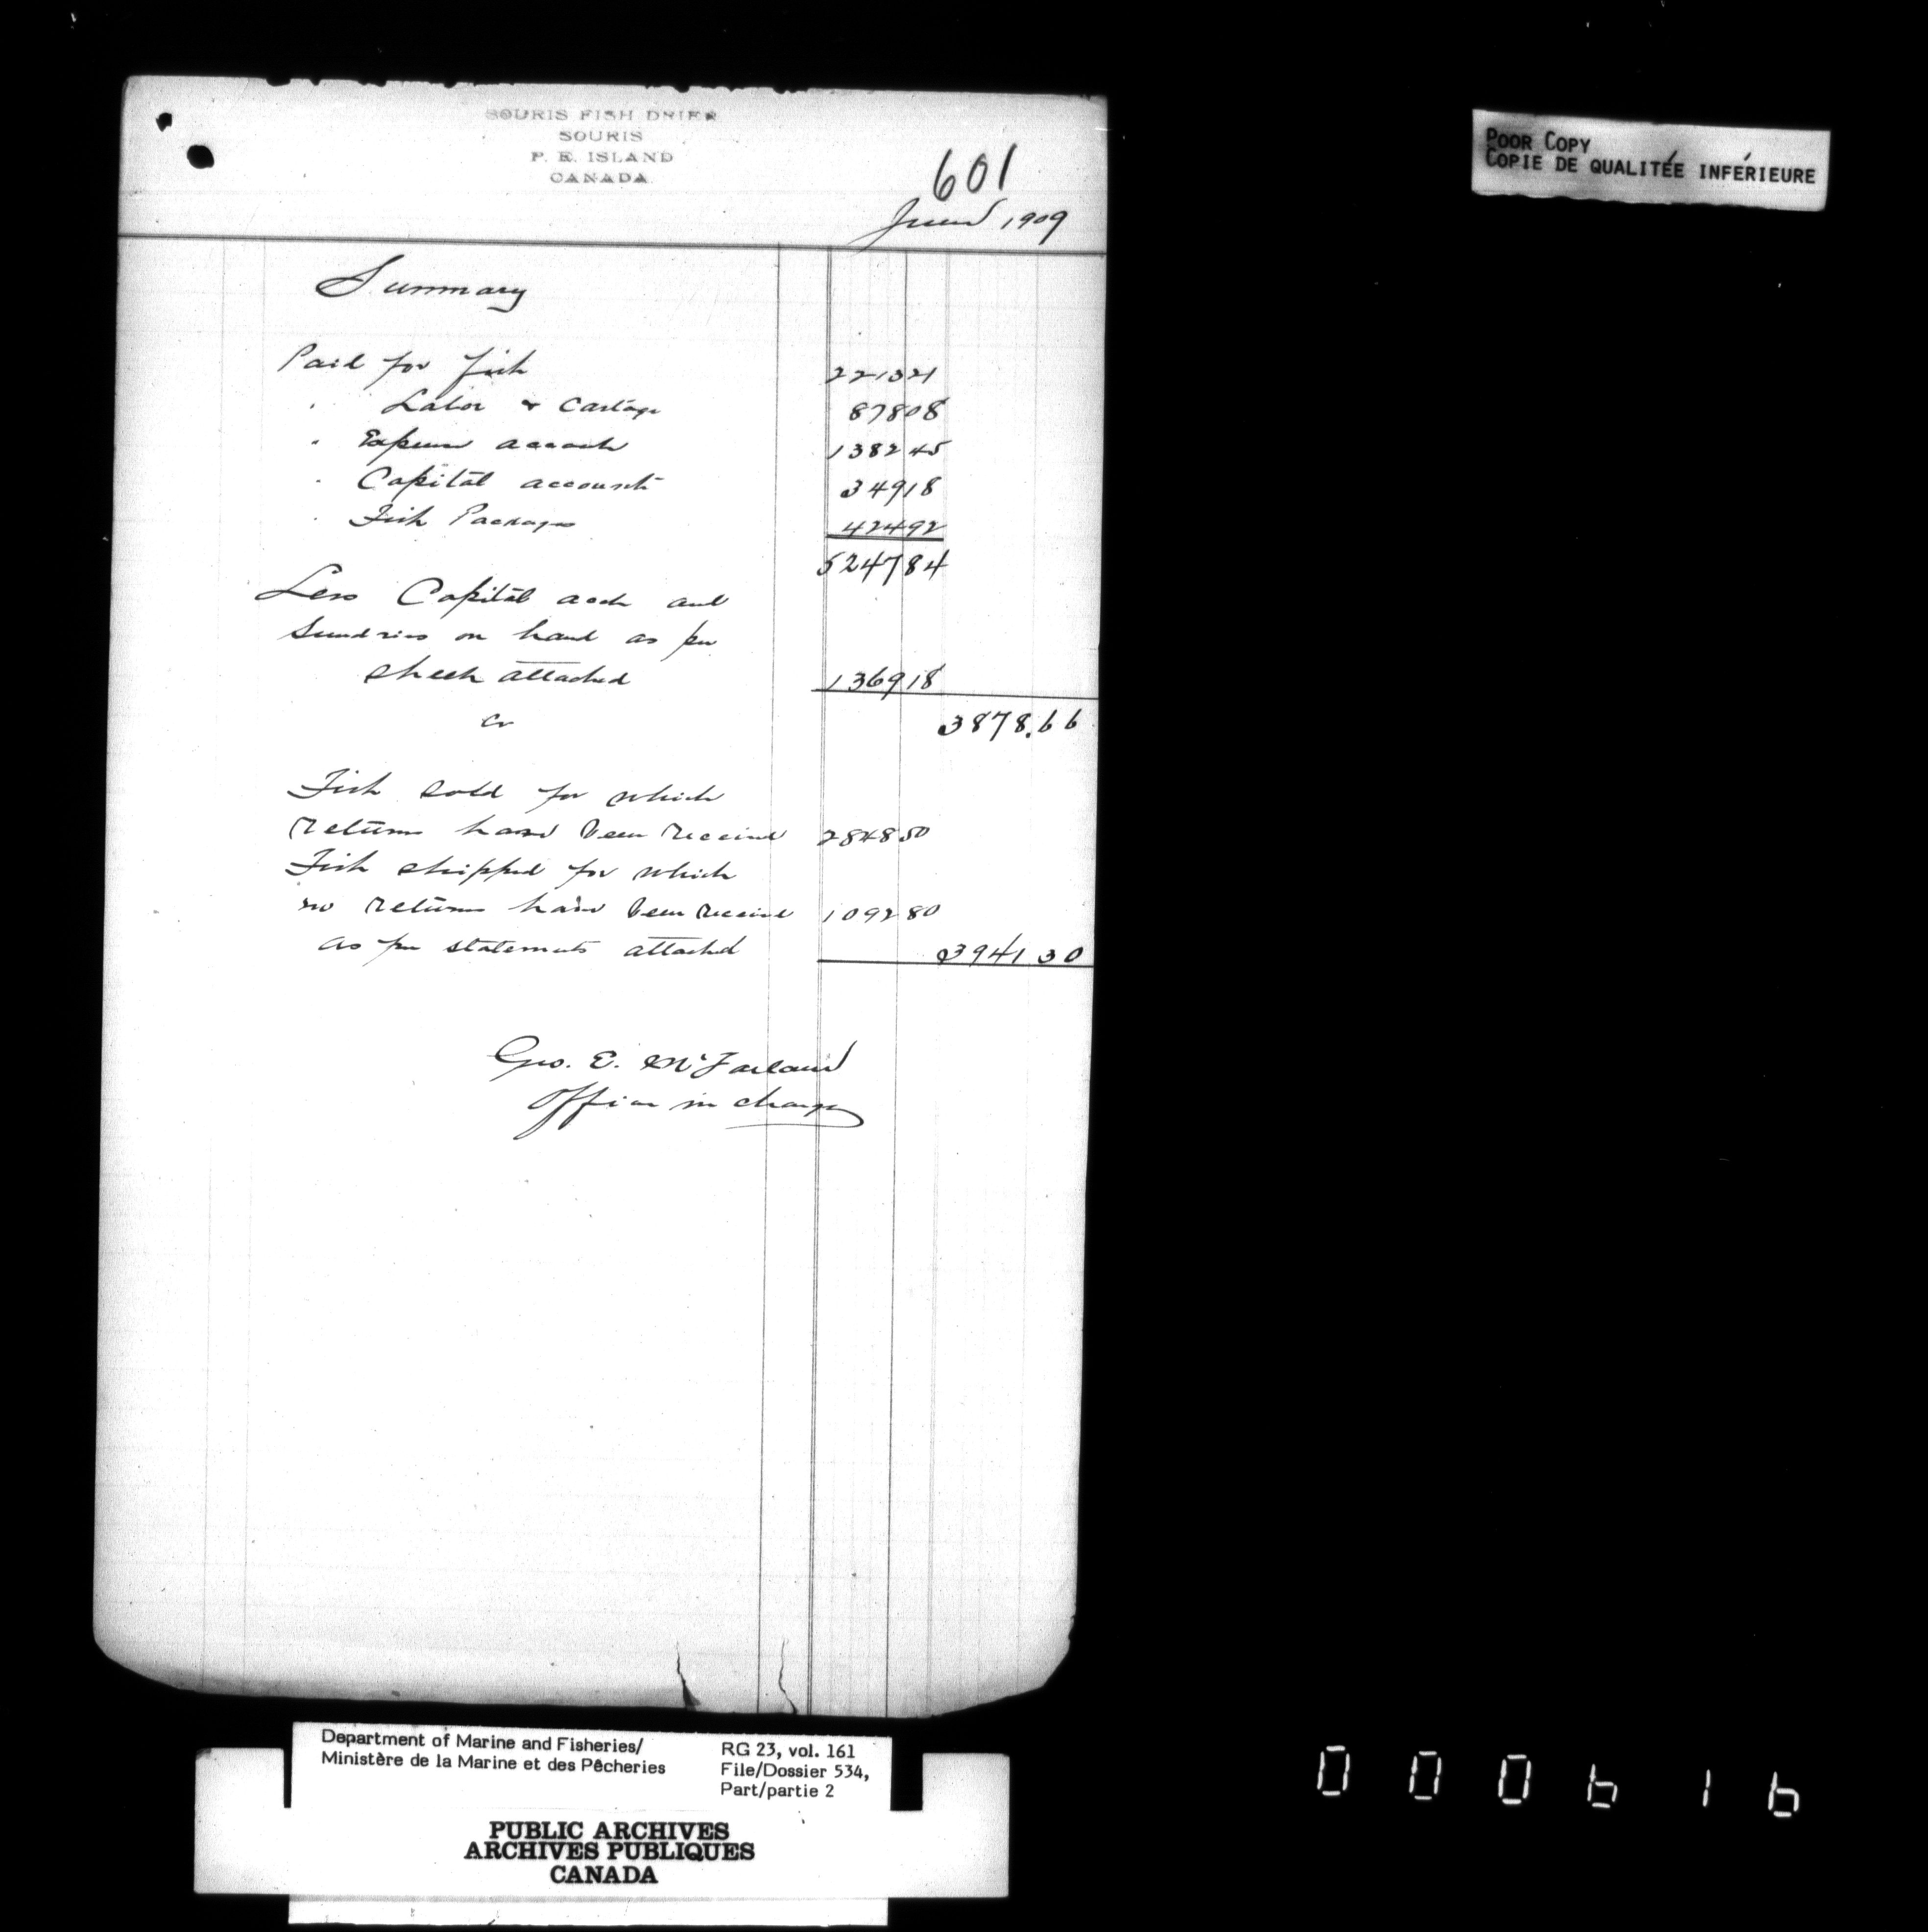 SOURIS FISH DRIER
SOURIS
P. E. ISLAND
CANADA
601
June 1909
Summary
Paid for fish 2213 21
" Labor & Cartage 878 08
" Expense accounts 1382 45
" Capital accounts 349 18
" Fish Packages 424 92
5247 84
Less Capital acct and
Sundries on hand as per
sheet attached 1369 18
Cr 3878.66
Fish sold for which
returns have been received 2848 50
Fish shipped for which
no returns have been received 1092 80
as per statements attached 3941 30
Geo. E. McFarland
Officer in charge
POOR COPY
COPIE DE QUALITÉE INFÉRIEURE
Department of Marine and Fisheries/
Ministère de la Marine et des Pêcheries
RG 23, vol. 161
File/Dossier 534,
Part/partie 2
PUBLIC ARCHIVES
ARCHIVES PUBLIQUES
CANADA
000616